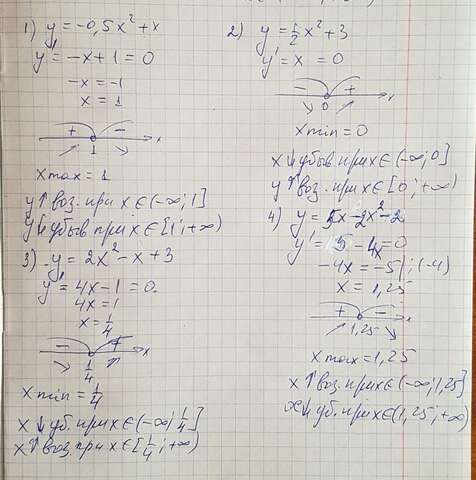 1) y = -0,5x² + x
y' = -x + 1 = 0
-x = -1
x = 1
+ 1 - x
x max = 1
y ↑ воз. при x ∈ (-∞; 1]
y ↓ убыв при x ∈ [1; +∞)
3) y = 2x² - x + 3
y' = 4x - 1 = 0.
4x = 1
x = 1/4
- 1/4 + x
x min = 1/4
x ↓ уб. при x ∈ (-∞; 1/4]
x ↑ воз. при x ∈ [1/4; +∞)
2) y = 1/2 x² + 3
y' = x = 0
- 0 + x
x min = 0
x ↓ убыв при x ∈ (-∞; 0]
y ↑ воз. при x ∈ [0; +∞)
4) y = 5x - 2x² - 2
y' = 5 - 4x = 0
-4x = -5 | : (-4)
x = 1,25
+ 1,25 - x
x max = 1,25
x ↑ воз. при x ∈ (-∞; 1,25]
x ↓ уб. при x ∈ (1,25; +∞)